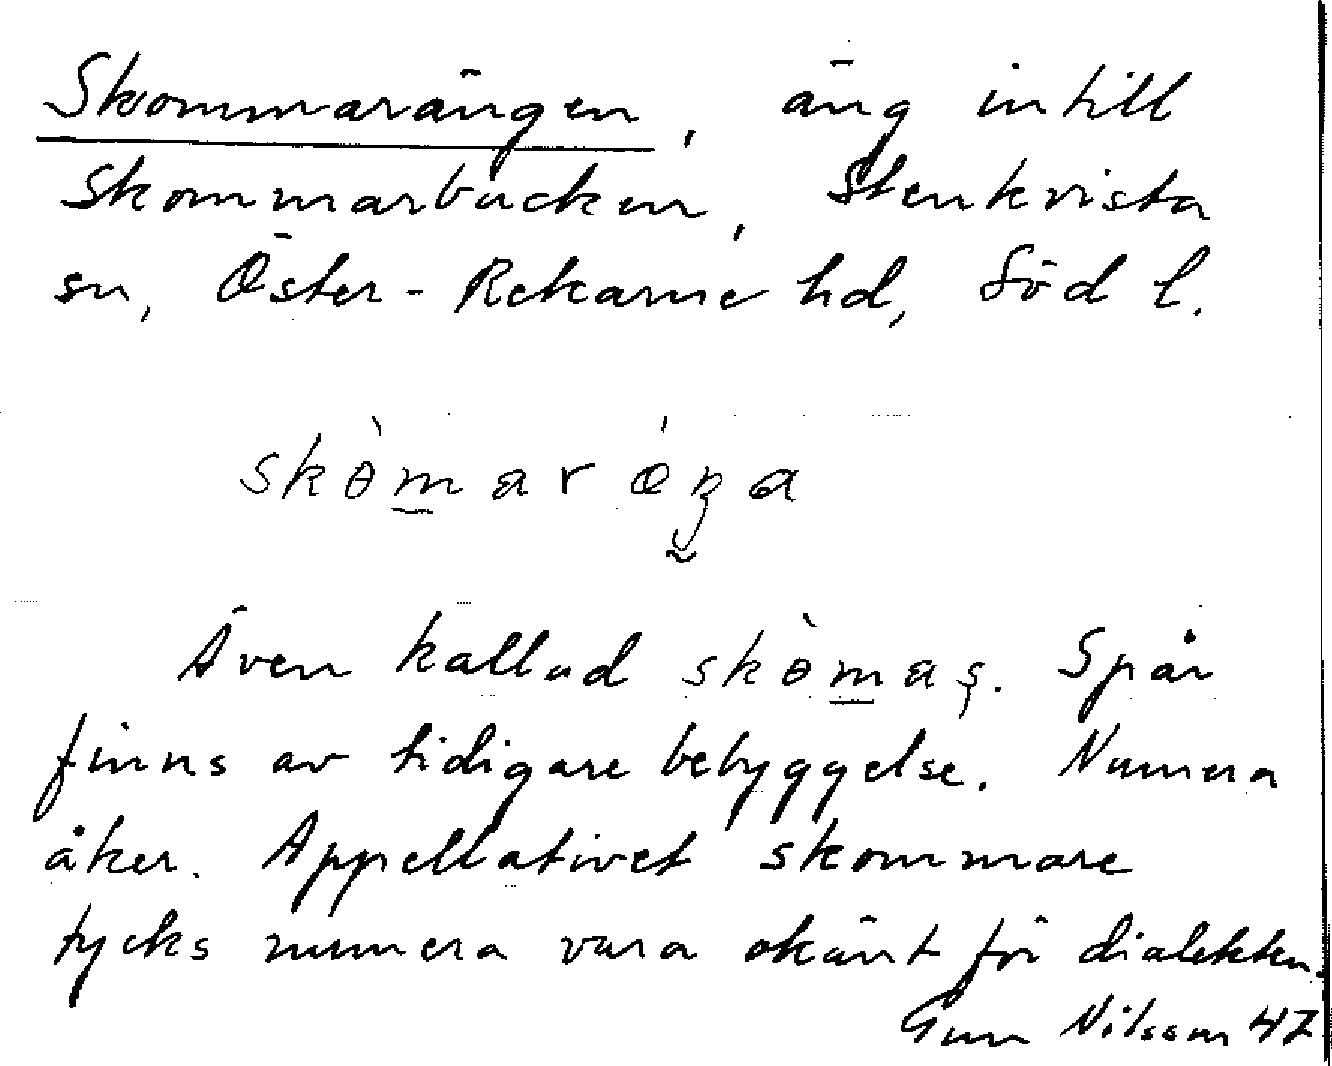 Skommarängen, äng intill
Skommarbacken, Stenkvista
sn, Öster-Rekarne hd, Söd l.
Även kallad Spår
finns av tidigare bebyggelse. Numera
åker. Appellativet skommare
tycks numera vara okänt för dialekten.
Gun Nilsson 47